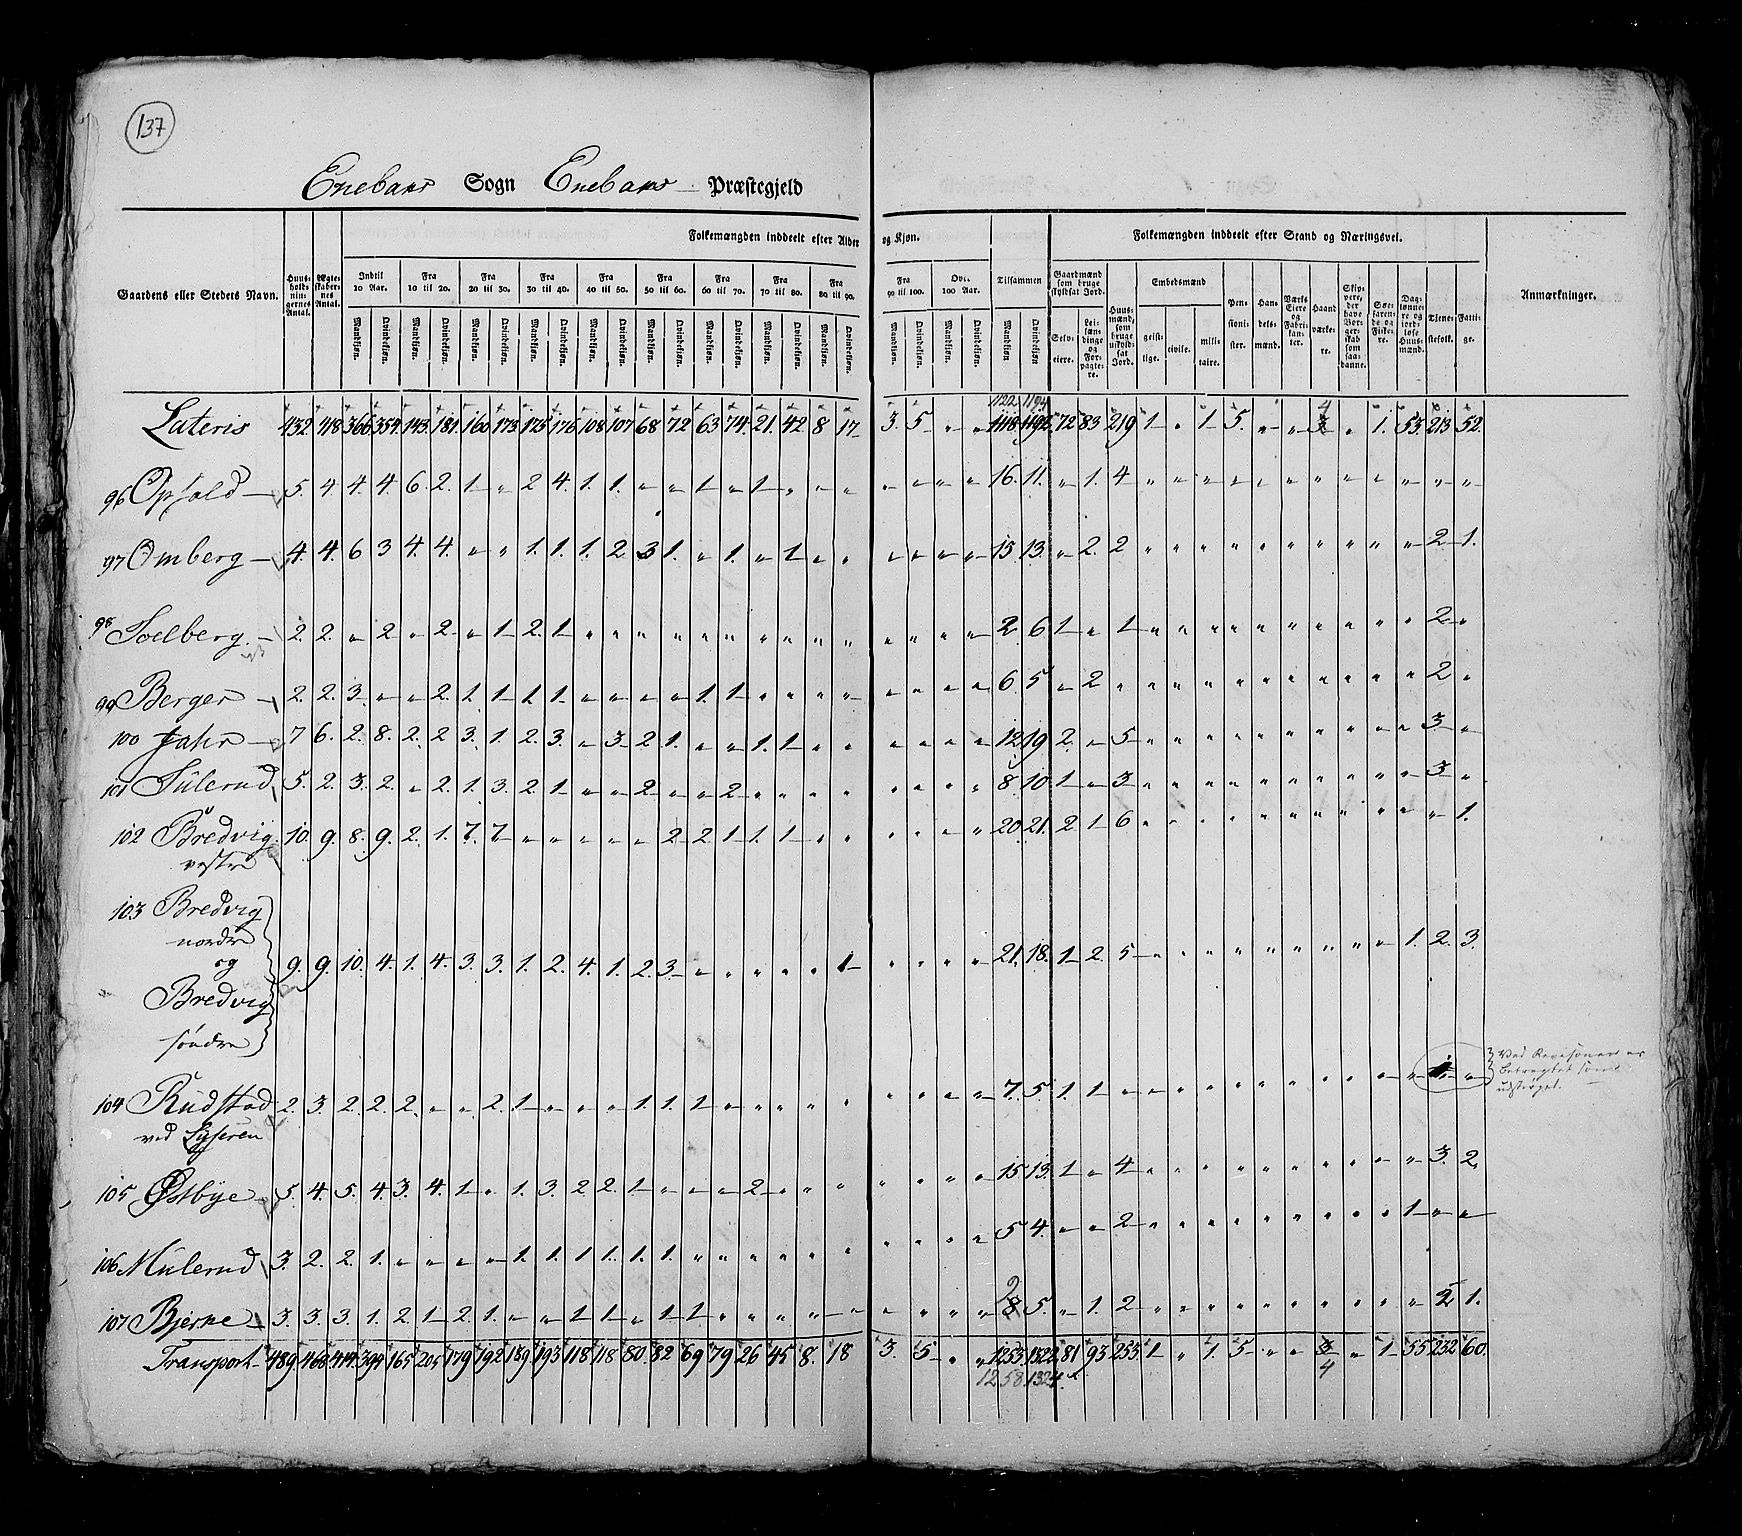 137
Enebaks Sogn Enebaks Præstegjeld
Gaardens eller Stedets Navn.
Huus-holdnin-gernes Antal.
Ægte-skaber-nes Antal.
Folkemængden inddeelt efter Alder og Kjøn.
Indtil 10 Aar. Fra 10 til 20. Fra 20 til 30. Fra 30 til 40. Fra 40 til 50. Fra 50 til 60. Fra 60 til 70. Fra 70 til 80. Fra 80 til 90. Fra 90 til 100. Over 100 Aar. Tilsammen
Mandkjøn. Qvindekjøn. Mandkjøn. Qvindekjøn. Mandkjøn. Qvindekjøn. Mandkjøn. Qvindekjøn. Mandkjøn. Qvindekjøn. Mandkjøn. Qvindekjøn. Mandkjøn. Qvindekjøn. Mandkjøn. Qvindekjøn. Mandkjøn. Qvindekjøn. Mandkjøn. Qvindekjøn. Mandkjøn. Qvindekjøn. Mandkjøn. Qvindekjøn.
Folkemængden inddeelt efter Stand og Næringsvei.
Gaardmænd som bruge skyldsat Jord.
Selv-eiere. Lei-læn-dinge og For-pagte-re.
Huus-mænd, som bruge uskyld-sat Jord.
Embedsmænd
geist-lige. civile. mili-taire.
Pen-sioni-ster.
Han-dels-mænd.
Værks Eiere og Fabri-kan-ter.
Haand værke-re.
Skip-pere, der have Bor-ger-skab som saa-danne.
Søe-faren-de og Fiske-re.
Dag-lønne-re og jord-løse Huus-mænd.
Tjene-stefolk.
Fatti-ge.
Anmærkninger.
1122 1194 4
Lateris 432 418 366 354 143 181 160 173 175 176 108 107 68 72 63 74 21 42 8 17 3 5 " " 1118 1192 72 83 219 1 " 1 5 " " 3 " 1 53 213 52
96 Opsald 5 4 4 4 6 2 1 " 2 4 1 1 " " 1 " 1 " " " " " " " 16 11 " 1 4 " " " " " " " " " " " "
97 Omberg 4 4 6 3 4 4 " " 1 1 1 2 3 1 " 1 " 1 " " " " " " 15 13 " 2 2 " " " " " " " " " " 2 1
98 Soelberg 2 2 " 2 " 2 " 1 2 1 " " " " " " " " " " " " " " 2 6 1 " 1 " " " " " " " " " " 2 "
99 Berger 2 2 3 " " 2 1 1 1 1 " " " " 1 1 " " " " " " " " 6 5 " 2 " " " " " " " " " " " 2 "
100 Jahr 7 6 2 8 2 2 3 1 2 3 " 3 2 1 " " 1 1 " " " " " " 12 19 2 " 5 " " " " " " " " " " 3 "
101 Sulerud 5 2 3 2 " 2 1 3 2 1 " " 2 " " 2 " " " " " " " " 8 10 1 " 3 " " " " " " " " " " 3 "
102 Bredvig 10 9 8 9 2 1 7 7 " " " " " 2 2 1 1 1 " " " " " " 20 21 2 1 6 " " " " " " " " " " " 1
vestre
103 Bredvig
nordre
og 9 9 10 4 1 4 3 3 1 2 4 1 2 3 " " " " " 1 " " " " 21 18 1 2 5 " " " " " " " " " 1 2 3
Bredvig
söndre
104 Rudstad 2 3 2 2 2 " " 2 1 " " " 1 1 1 " " " " " " " " " 7 5 1 1 " " " " " " " " " " " "
ved Lyseren
Ved Revisionen er
betragtet som
udstrøget.
105 Østbye 5 4 5 4 3 4 1 " 1 3 2 2 1 " " " 2 " " " " " " " 15 13 1 " 4 " " " " " " " " " " 3 2
106 Mulerud 3 2 2 1 " " " " 1 1 1 1 1 1 " " " " " " " " " " 5 4 " " 2 " " " " " " " " " 1 " "
9
107 Bjerke 3 3 3 1 2 1 2 1 " " 1 1 " 1 1 " " " " " " " " " 8 5 " 1 2 " " " " " " " " " " 2 1
Transport 489 468 414 394 165 205 179 192 189 193 118 118 80 82 69 79 26 45 8 18 3 5 " " 1253 1322 81 93 253 1 " 1 5 " " 3 " 1 55 232 60
1258 1324 4